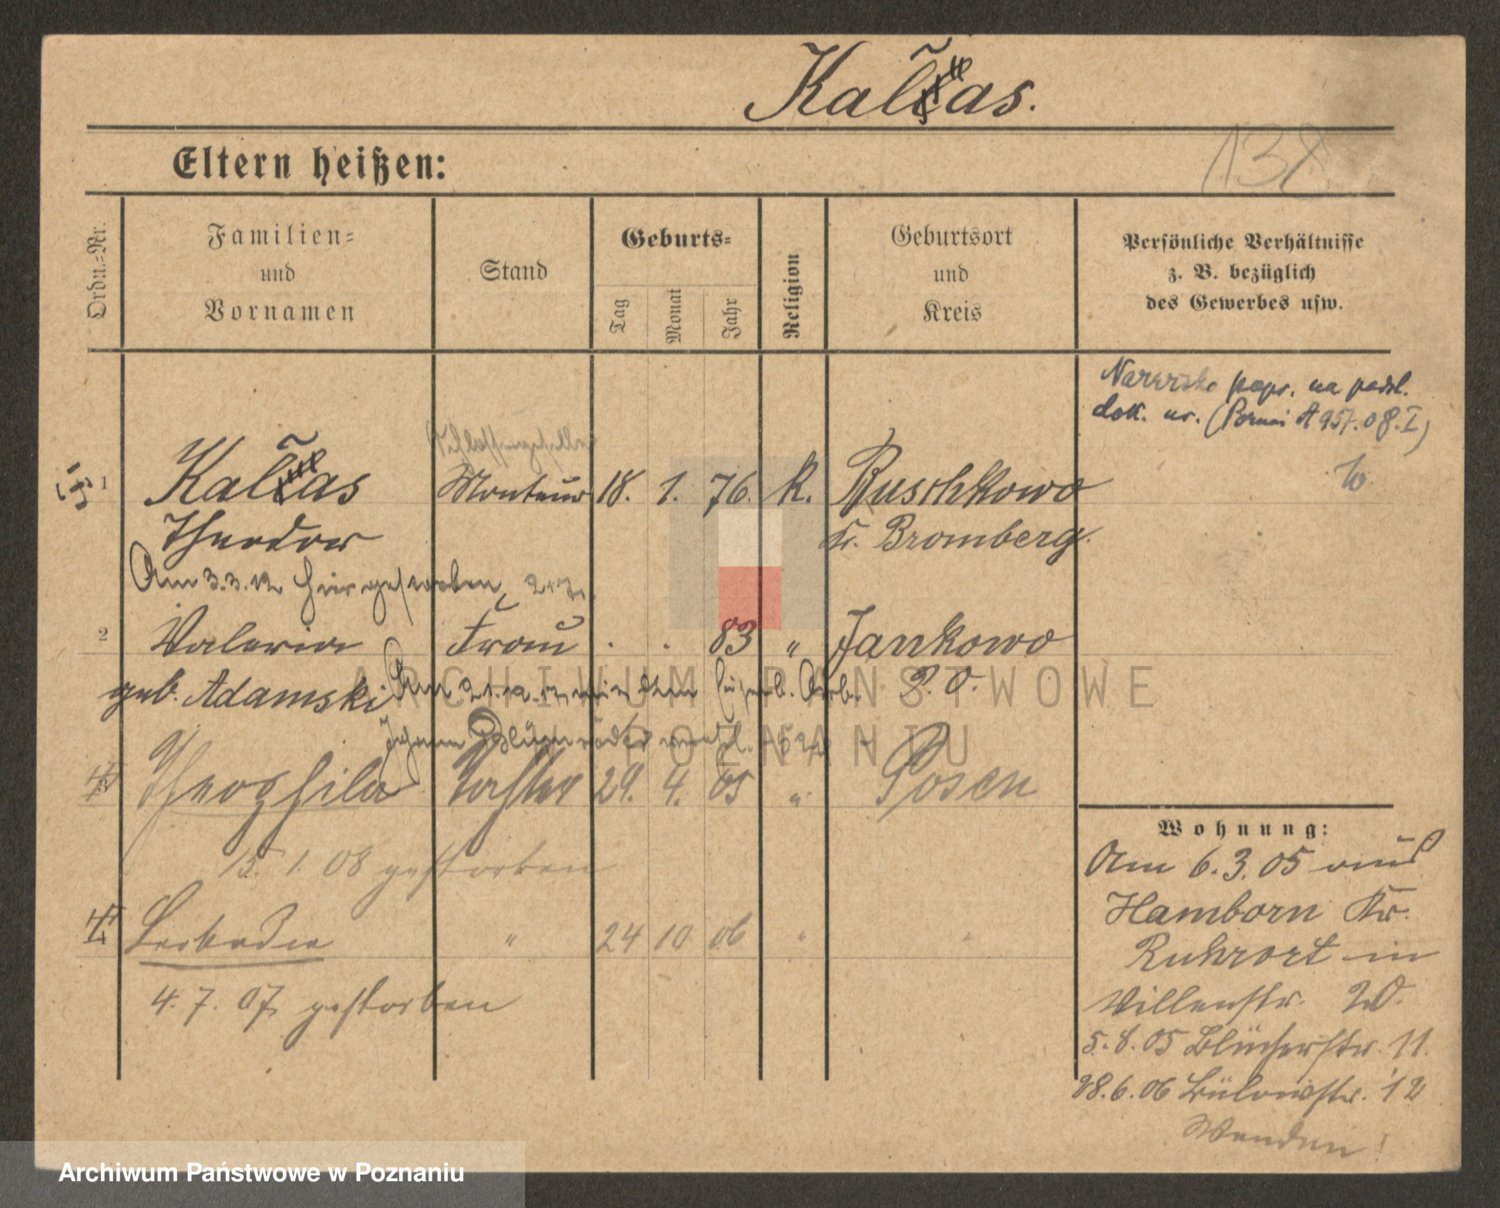 Kallas.
138
Eltern heißen:
Ordn.-Nr.
Familien-
und
Vornamen
Stand
Geburts-
Tag
Monat
Jahr
Religion
Geburtsort
und
Kreis
Persönliche Verhältnisse
z. B. bezüglich
des Gewerbes usw.
Nazwisko popr. na podst.
dok. ur.
1 Kallas Monteur 18. 1. 76. K. Ruschkowo
Theodor Kr. Bromberg.
Am 3.3.12 hier gestorben
2 Valeria Frau . . 83 " Jankowo
geb. Adamski. Am 21.12.12 mit dem
verh.
P. O.
Theophila Tochter 29. 4. 05 " Posen
15. 1. 08 gestorben
Leokadia " 24 10 06 " "
4. 7. 07 gestorben
Wohnung:
Am 6.3.05 aus
Hamborn Kr.
Ruhrort in
Villenstr. 20.
5.8.05 Blücherstr. 11.
28.6.06 Bülowstr. 12
Wenden!
ARCHIWUM PAŃSTWOWE
W POZNANIU
Archiwum Państwowe w Poznaniu